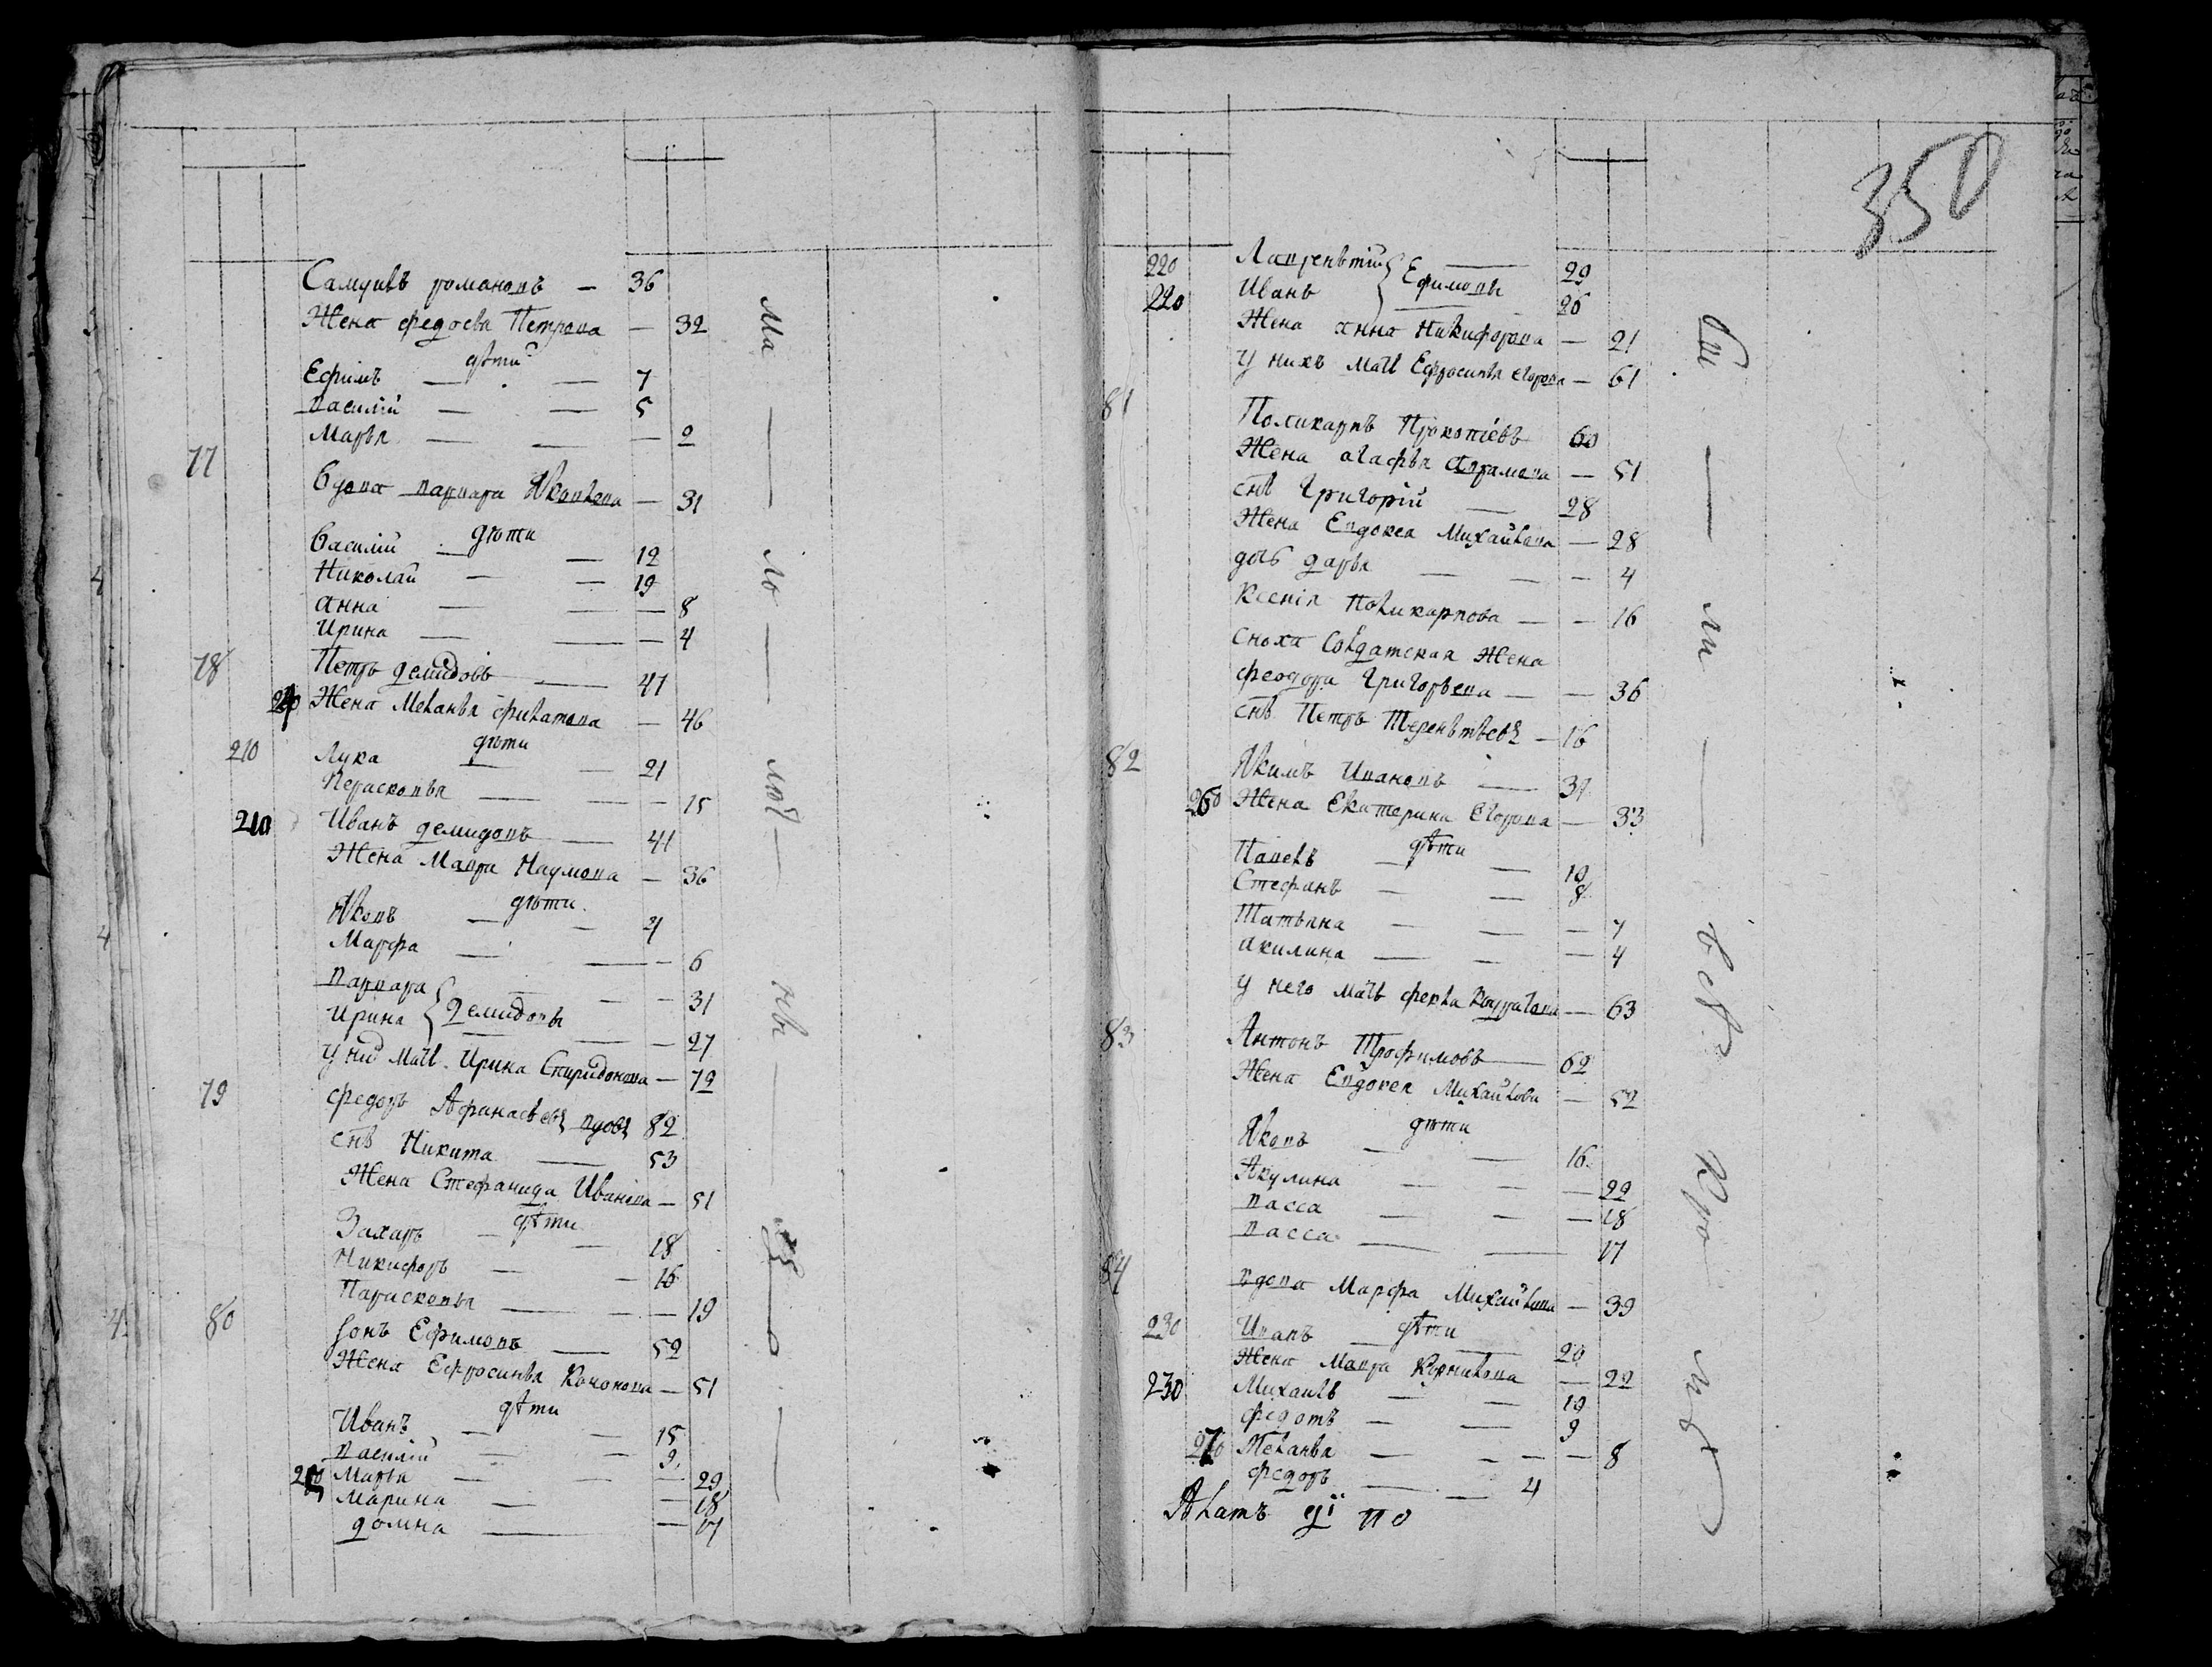 Самуилъ романовъ — 36
Жена федосья Петрова — 32
дѣти
Ефимъ — 7
василій — 5
Марья — 2
77
Вдова варвара Яковлева — 31
дѣти
Василий — 12
Николай — 19
анна — 8
Ирина — 4
78
Петръ демидовъ — 47
Жена Меланья филатова — 46
дѣти
210 Лука — 21
Перасковья — 15
210 Иванъ демидовъ — 41
Жена Мавра Наумова — 36
дѣти
Яковъ — 4
Марфа — 6
варвара — 31
Ирина } демидовы — 27
у ни мать Ирина Спиридонова — 72
79
федоръ Афанасьевъ вдовъ 82
снъ Никита — 53
Жена Стефанида Иванова — 51
дѣти
Захаръ — 18
Никифоръ — 16
Парасковья — 19
80
Іонъ Ефимовъ — 52
Жена Ефросинья Кононова — 51
дѣти
Иванъ — 15
василій — 9
Марья — 29
Марина — 18
домна — 17
ма — ло — лѣт — ны —
350
220 Лаврентій } Ефимовы — 29
220 Иванъ — 26
Жена анна Никифорова — 21
у нихъ мать Ефросинья егорова — 61
81
Поликарпъ Прокопіевъ 60
Жена агафья аврамова — 51
снъ Григорій — 28
Жена Евдокея Михайлова — 28
дочь дарья — 4
Ксенія Поликарпова — 16
сноха солдатская Жена
феодора Григорьева — 36
снъ Петръ Терентьевъ — 16
82
Якимъ Ивановъ — 37
260 Жена Екатерина егорова — 33
дѣти
Павелъ — 10
Стефанъ — 8
Татьяна — 7
акилина — 4
у него мать фекла — 63
83
Антонъ Трофимовъ — 62
Жена Евдокея Михайлова — 52
дѣти
Яковъ — 16
Акулина — 22
васса — 18
васса — 17
84
вдова Марфа Михайлова — 39
дѣти
230 Иванъ — 20
Жена Мавра Корнилова — 22
230 Михаилъ — 19
федотъ — 9
270 Меланья — 8
федоръ — 4